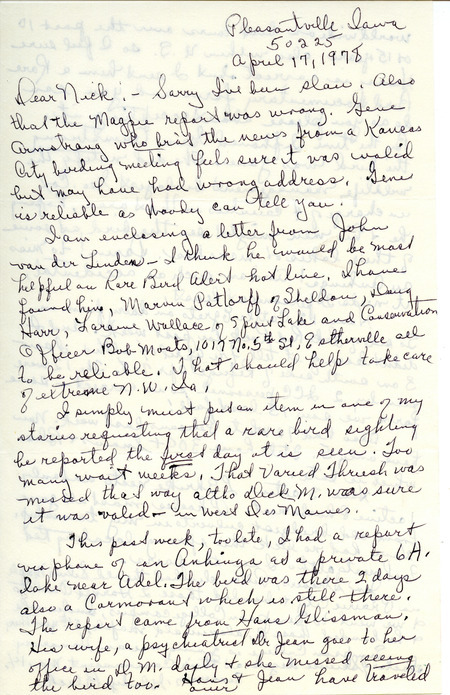 Pleasantville, Iowa
50225
April 17, 1978
Dear Nick: - Sorry I've been slow. Also
that the Magpie report was wrong. Gene
Armstrong who bro't the news from a Kansas
City birding meeting feels sure it was valid
but may have had wrong address. Gene
is reliable as Woody can tell you.
I am enclosing a letter from John
van der Linden - I think he would be most
helpful on Rare Bird Alert hot line. I have
found him, Marvin Patlorff of Sheldon, Doug
Harr, Laraine Wallace of Spirit Lake and Conservation
Officer Bob Moats, 1017 No. 5th St, Estherville all
to be reliable. That should help take care
of extreme N.W. Ia.
I simply must put an item in one of my
stories requesting that a rare bird sighting
be reported the first day it is seen. Too
many wait weeks. That Varied Thrush was
missed that way altho Dick M. was sure
it was valid - in West Des Moines.
This past week, too late, I had a report
via phone of an Anhinga at a private 6 A.
lake near Adel. The bird was there 2 days
also a Cormorant which is still there.
The report came from Hans Glissman.
His wife, a psychiatrist Dr Jean goes to her
office in D.M. daily & she missed seeing
the bird too. Hans & Jean have traveled
over